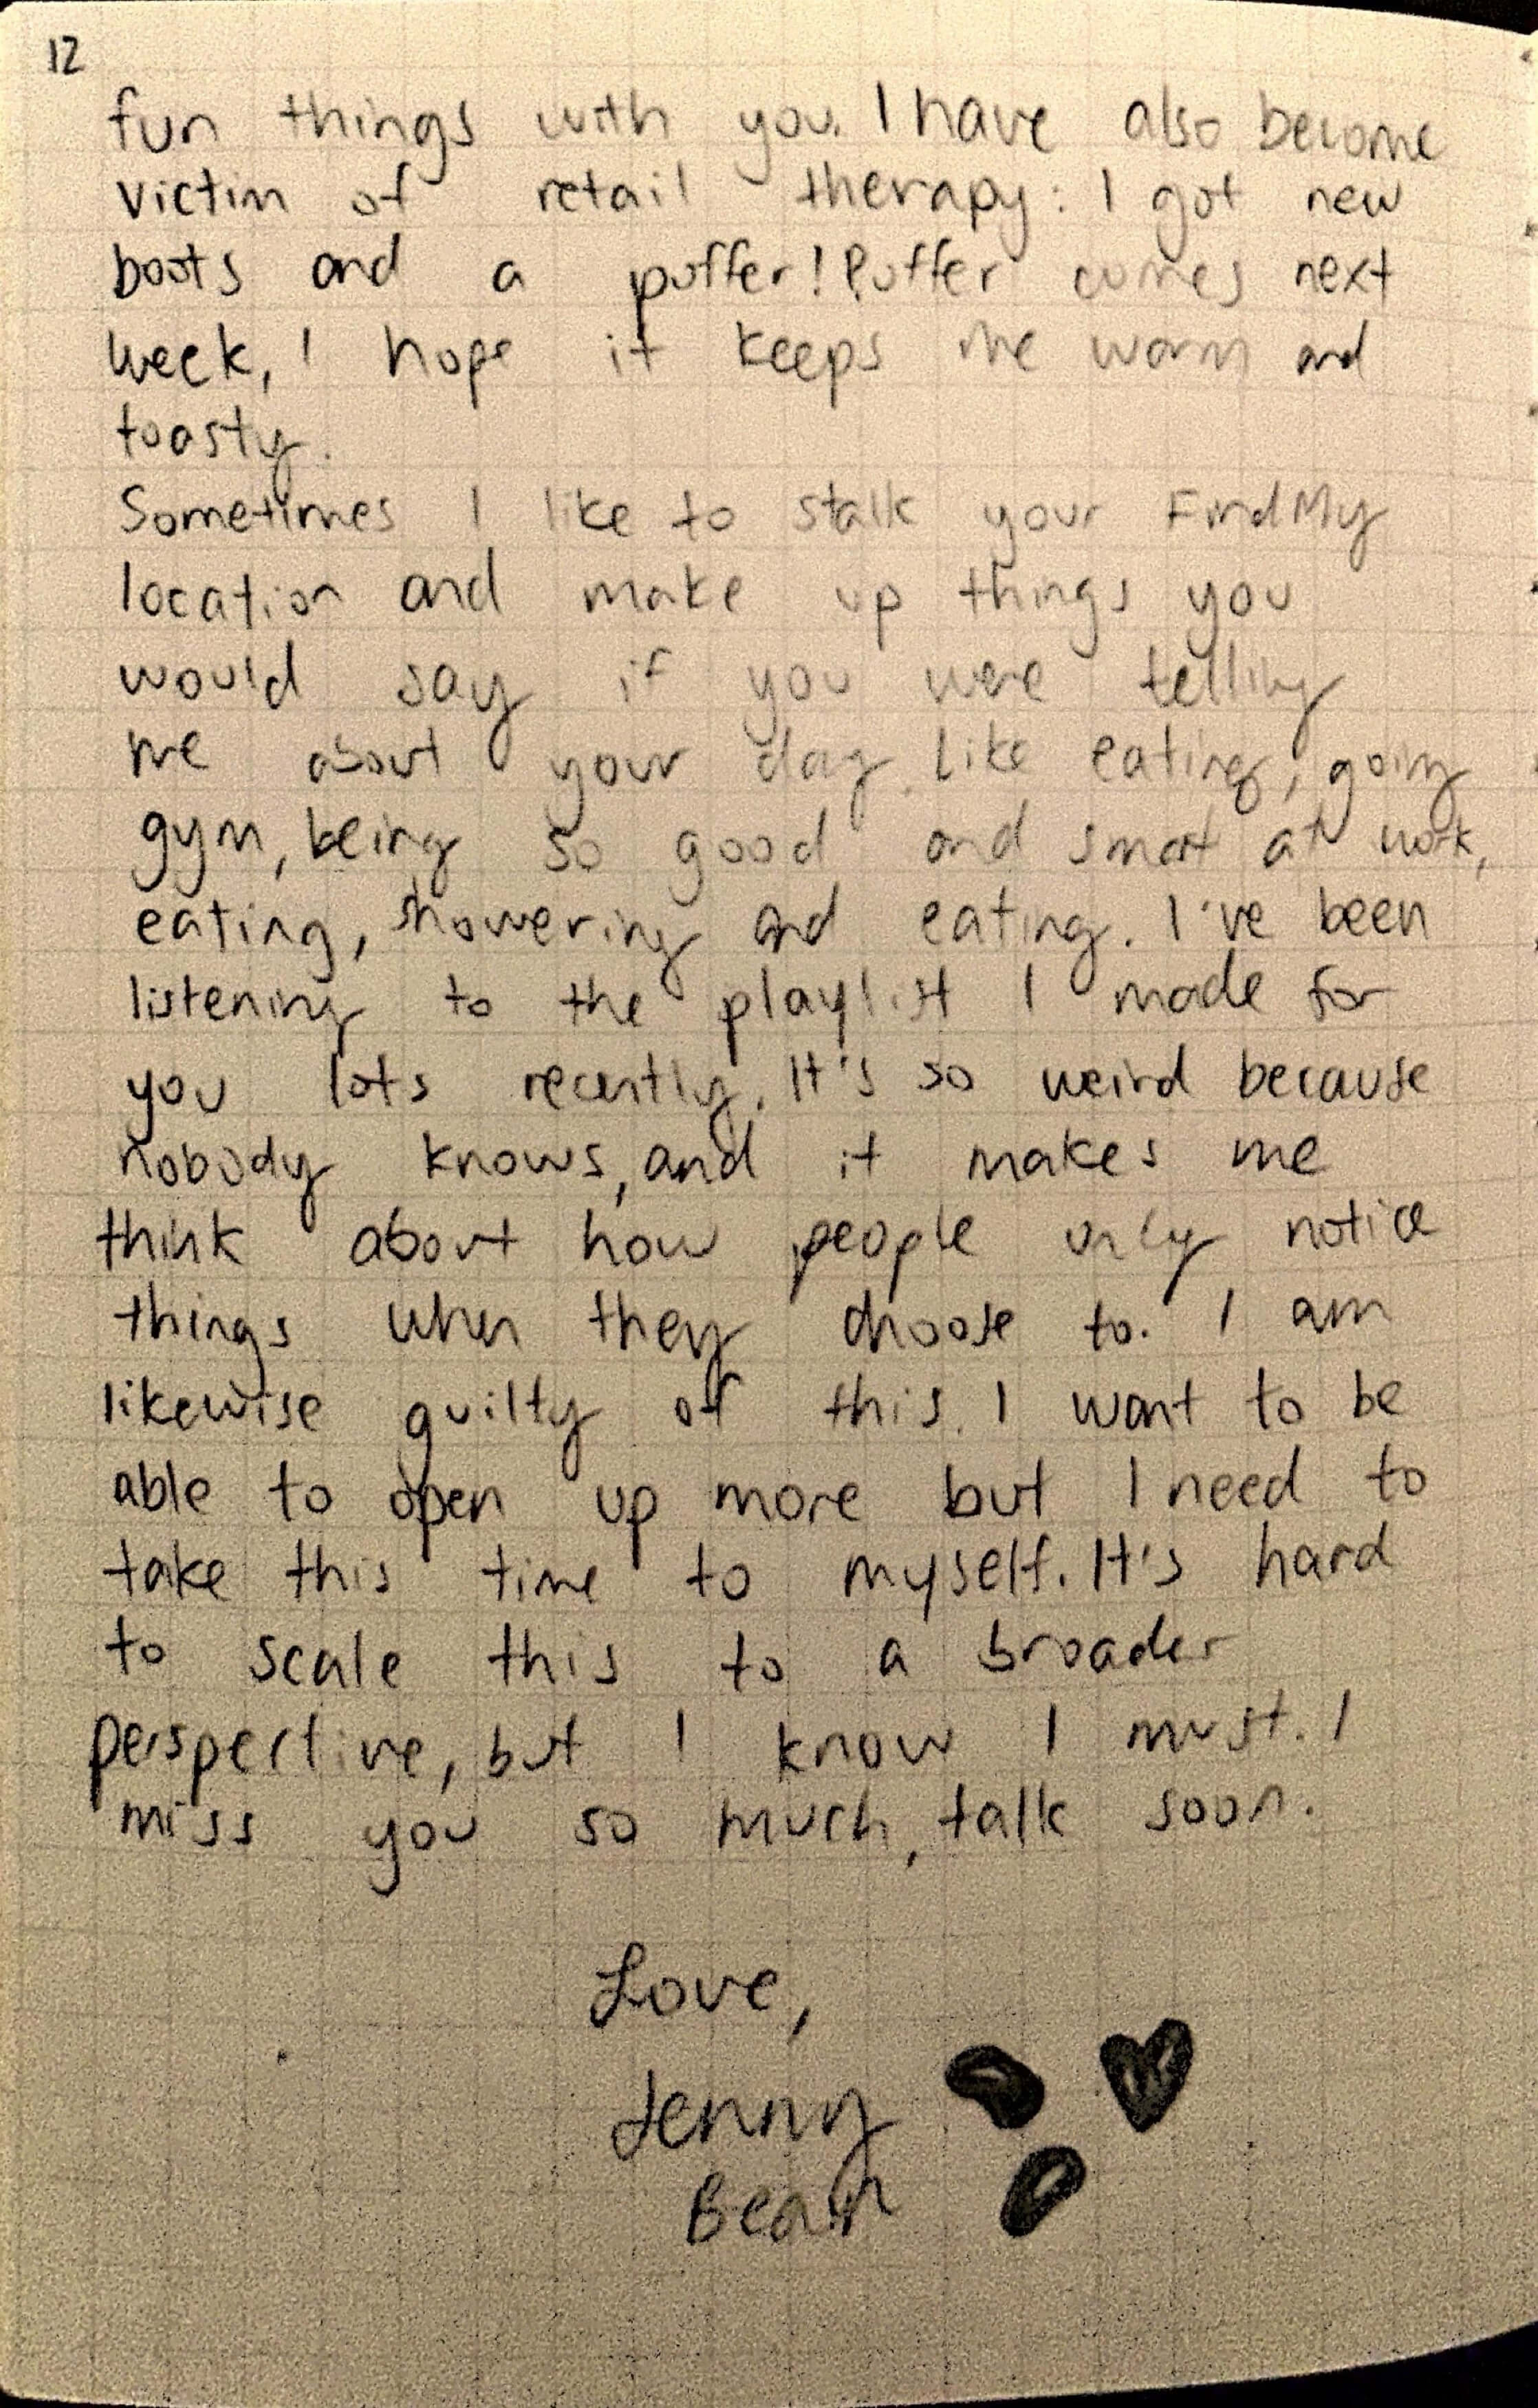 12
fun things with you. I have also become
victim of retail therapy: I got new
boots and a puffer! Puffer comes next
week, I hope it keeps me warm and
toasty.
Sometimes I like to stalk your FindMy
location and make up things you
would say if you were telling
me about your day. Like eating, going
gym, being so good and smart at work,
eating, showering and eating. I've been
listening to the playlist I made for
you lots recently. It's so weird because
nobody knows, and it makes me
think about how people only notice
things when they choose to. I am
likewise guilty of this. I want to be
able to open up more but I need to
take this time to myself. It's hard
to scale this to a broader
perspective, but I know I must. I
miss you so much, talk soon.
Love,
Jenny
Bean